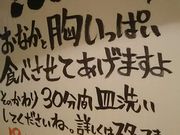 おなかと胸いっぱい
食べさせてあげますよ
そのかわり30分間皿洗い
してくださいね。詳しくはスタ